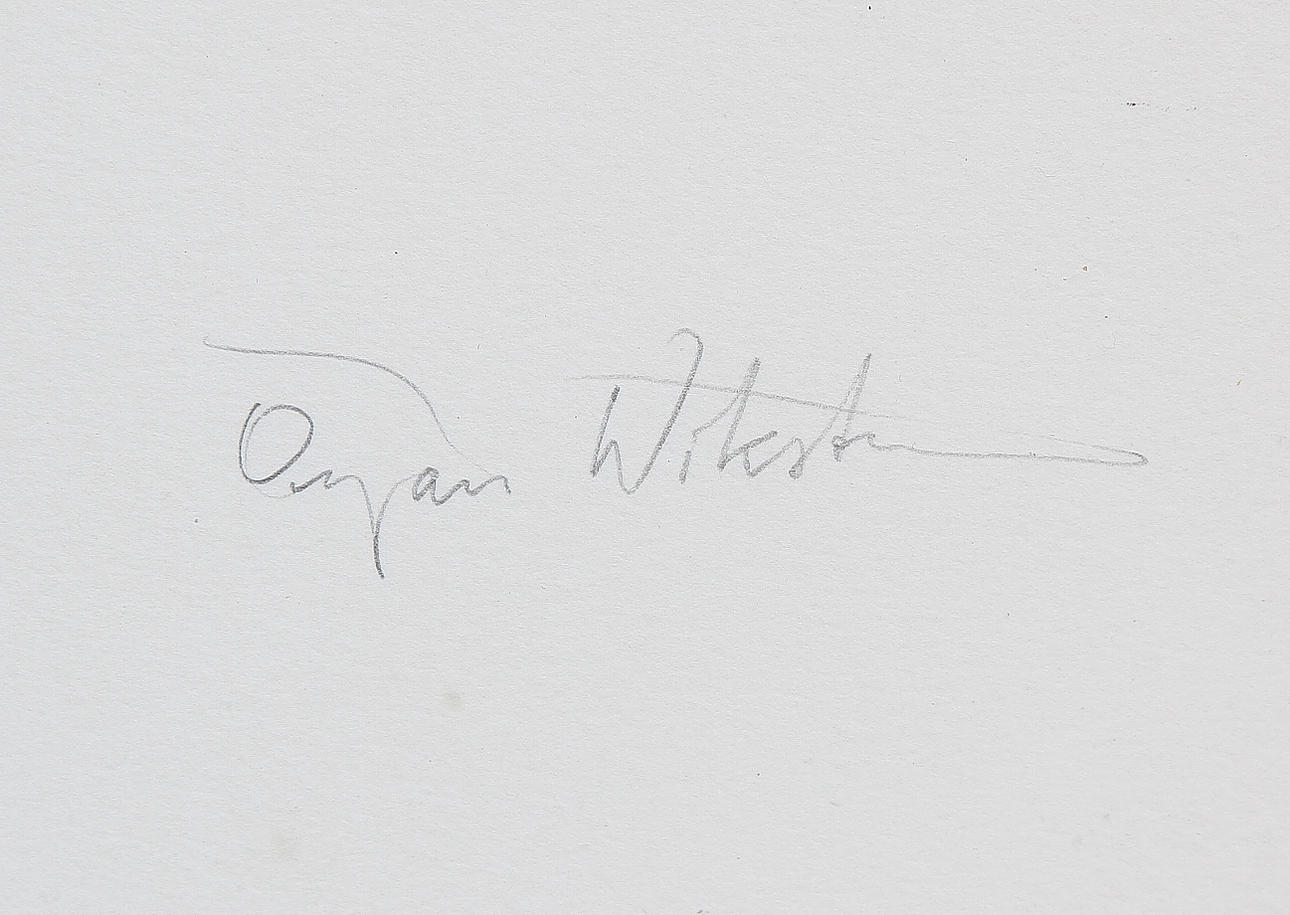 Örjan Wikström